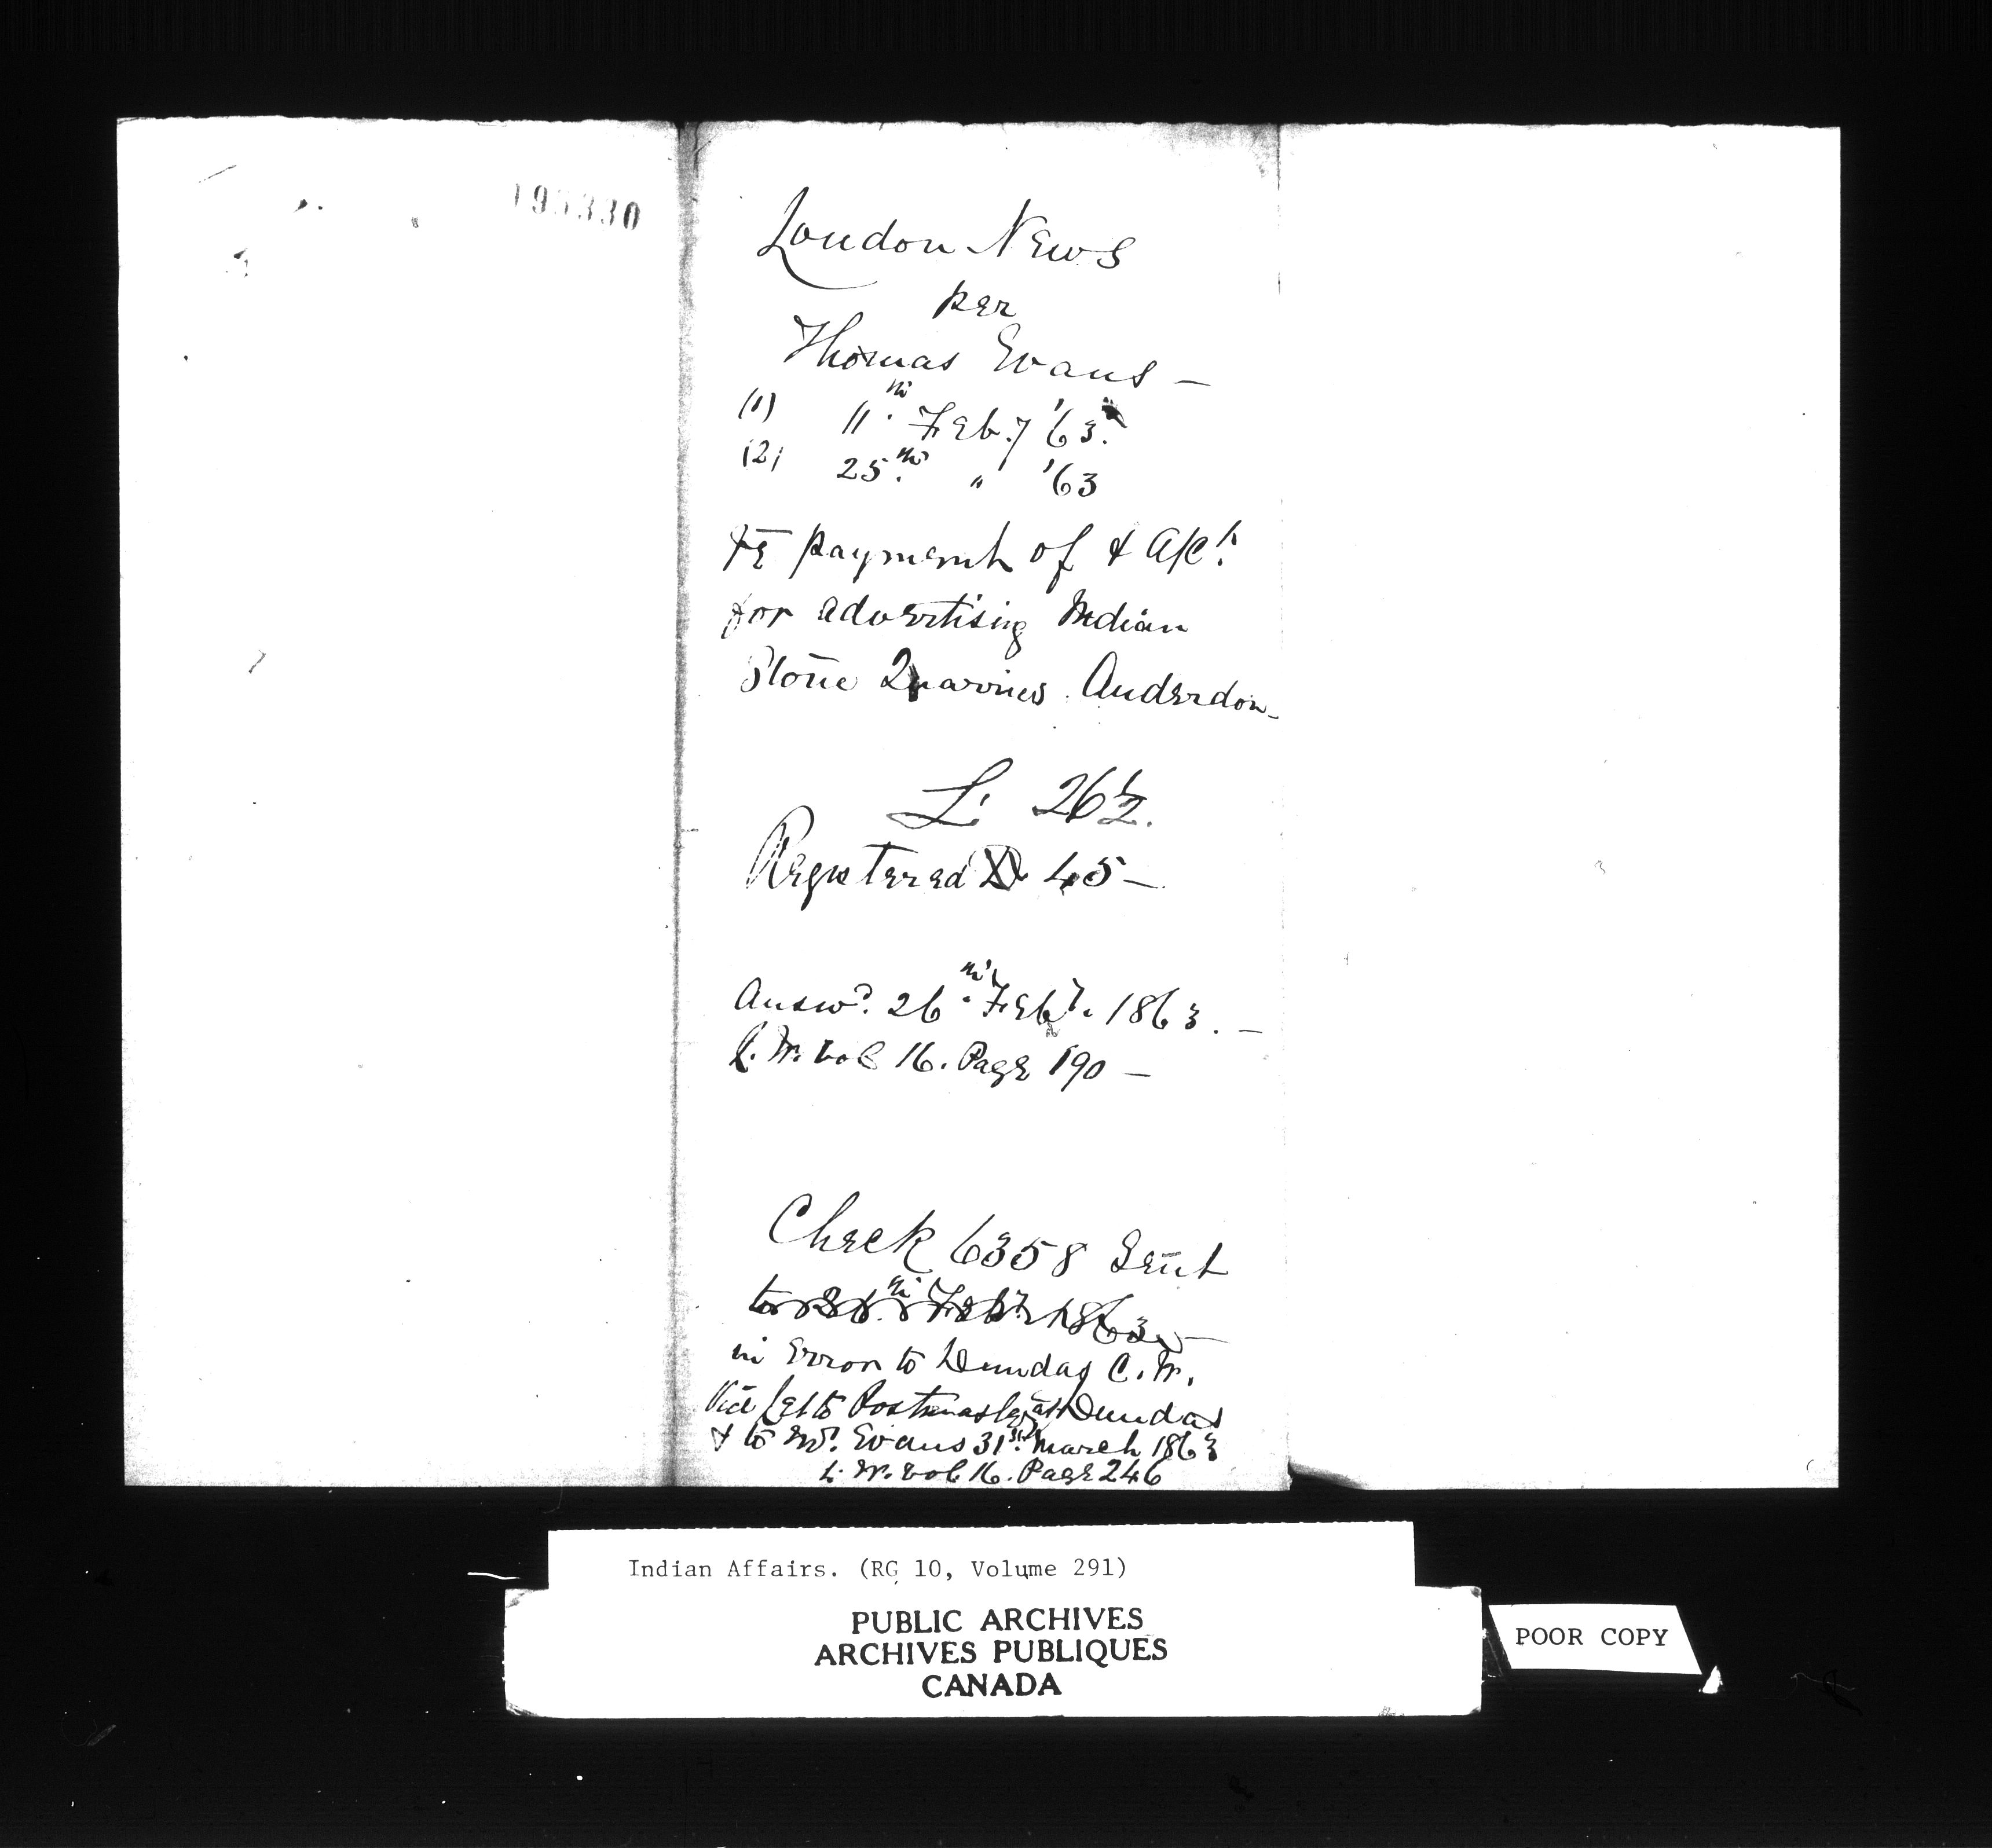 195330
London News
per
Thomas Evans —
(1) 11th Feby '63.
(2) 25th " '63
re payment of & a/ct
for advertising Indian
Stone Quarries Anderdon —
L. 26 1/2.
Registered 45 —
Answd. 26th Feby. 1863. —
L. W. vol 16. Page 190 —
Check 6358 Sent
to 26th Feby. 1863 —
in Error to Dundas C. W.
Vide Let to Postmaster at Dundas
& to Mr. Evans 31st March 1863
L. W. vol 16. Page 246
Indian Affairs. (RG 10, Volume 291)
PUBLIC ARCHIVES
ARCHIVES PUBLIQUES
CANADA
POOR COPY